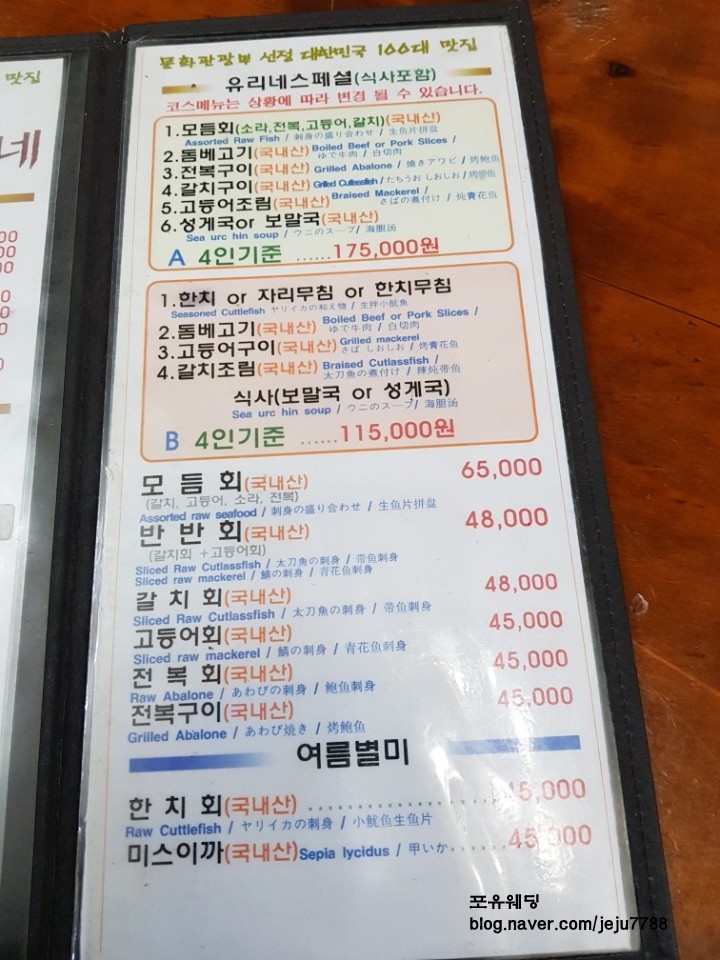 맛집
네
00
00
00
0
0
0
0
문화관광부 선정 대한민국 100대 맛집
유리네스페셜(식사포함)
코스메뉴는 상황에 따라 변경 될 수 있습니다.
1.모듬회(소라,전복,고등어,갈치)(국내산)
Assorted Raw Fish / 刺身の盛り合わせ / 生鱼片拼盘
2.돔베고기(국내산) Boiled Beef or Pork Slices /
ゆで牛肉 / 白切肉
3.전복구이(국내산) Grilled Abalone / 焼きアワビ / 烤鲍鱼
4.갈치구이(국내산) Grilled Cutlassfish / たちうお しおしお / 烤带鱼
5.고등어조림(국내산) Braised Mackerel /
さばの煮付け / 炖青花鱼
6.성게국or 보말국(국내산)
Sea urc hin soup / ウニのスープ / 海胆汤
A 4인기준 ......175,000원
1.한치 or 자리무침 or 한치무침
Seasoned Cuttlefish ヤリイカの和え物 / 生拌小鱿鱼
2.돔베고기(국내산) Boiled Beef or Pork Slices /
ゆで牛肉 / 白切肉
3.고등어구이(국내산) Grilled mackerel
さば しおしお / 烤青花鱼
4.갈치조림(국내산) Braised Cutlassfish /
太刀魚の煮付け / 辣炖带鱼
식사(보말국 or 성게국)
Sea urc hin soup / ウニのスープ / 海胆汤
B 4인기준 ......115,000원
모 듬 회(국내산) 65,000
(갈치, 고등어, 소라, 전복)
Assorted raw seafood / 刺身の盛り合わせ / 生鱼片拼盘
반 반 회(국내산) 48,000
(갈치회 +고등어회)
Sliced Raw Cutlassfish / 太刀魚の刺身 / 带鱼刺身
Sliced raw mackerel / 鯖の刺身 / 青花鱼刺身
갈 치 회(국내산) 48,000
Sliced Raw Cutlassfish / 太刀魚の刺身 / 带鱼刺身
고등어회(국내산) 45,000
Sliced raw mackerel / 鯖の刺身 / 青花鱼刺身
전 복 회(국내산) 45,000
Raw Abalone / あわびの刺身 / 鲍鱼刺身
전복구이(국내산) 45,000
Grilled Abalone / あわび焼き / 烤鲍鱼
여름별미
한 치 회(국내산) 45,000
Raw Cuttlefish / ヤリイカの刺身 / 小鱿鱼生鱼片
미스이까(국내산) Sepia lycidus / 甲いか 45,000
포유웨딩
blog.naver.com/jeju7788